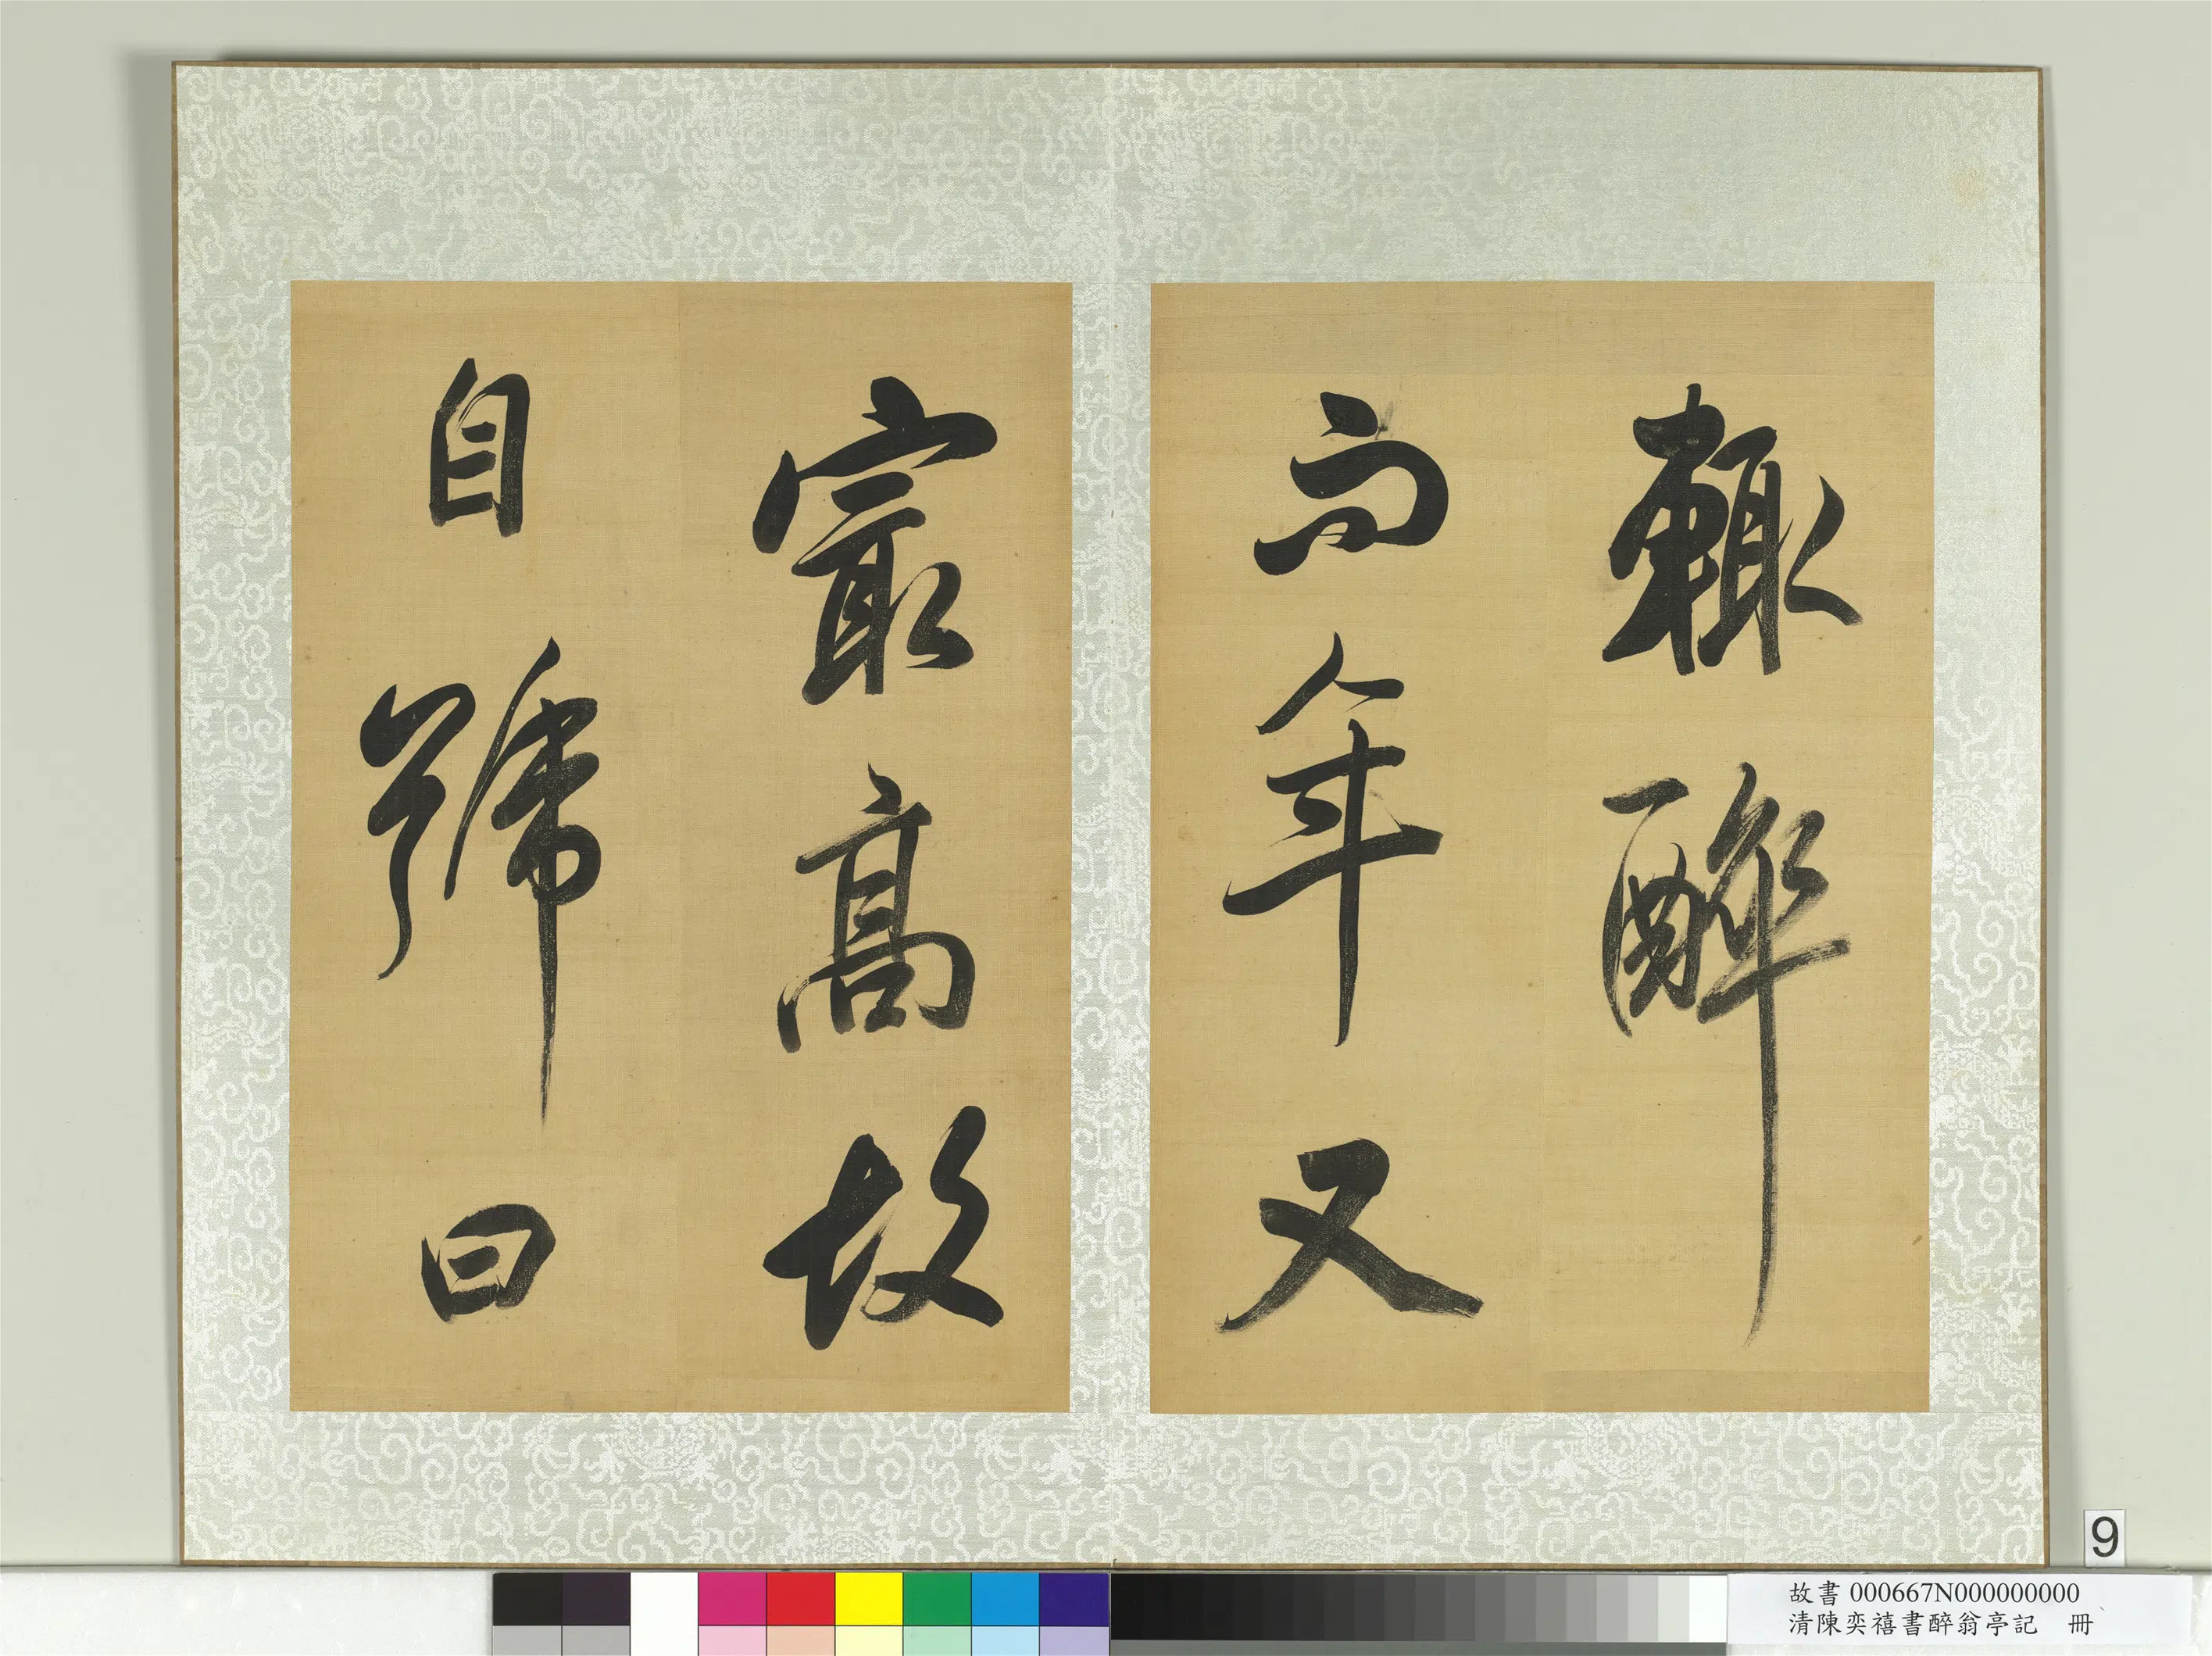 輙醉
而年又
㝡高故
自號曰
9
故書000667N000000000
清陳奕禧書醉翁亭記 冊